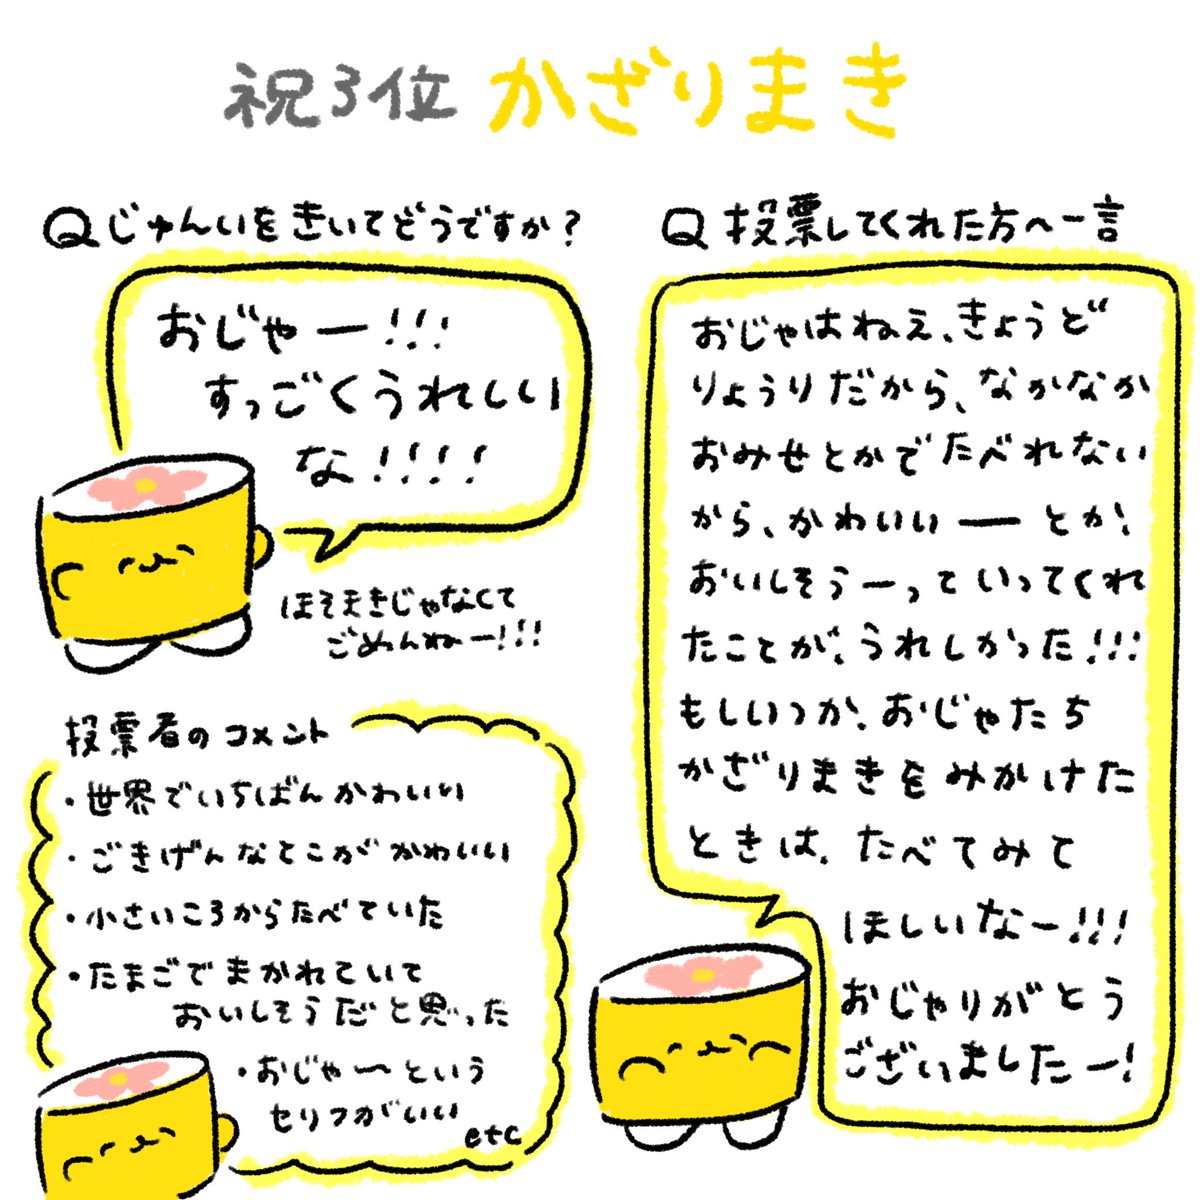 祝3位 かざりまき
Qじゅんいをきいてどうですか?
おじゃー!!!
すっごくうれしい
な!!!!
ほそまきじゃなくて
ごめんねー!!!
投票者のコメント
・世界でいちばんかわいい
・ごきげんなとこがかわいい
・小さいころからたべていた
・たまごでまかれていて
おいしそうだと思った
・おじゃ〜という
セリフがいい
etc
Q投票してくれた方へ一言
おじゃはねえ、きょうど
りょうりだから、なかなか
おみせとかでたべれない
から、かわいいーとか、
おいしそうーっていってくれ
たことが、うれしかった!!!
もしいつか、おじゃたち
かざりまきをみかけた
ときは、たべてみて
ほしいなー!!!
おじゃりがとう
ございましたー!